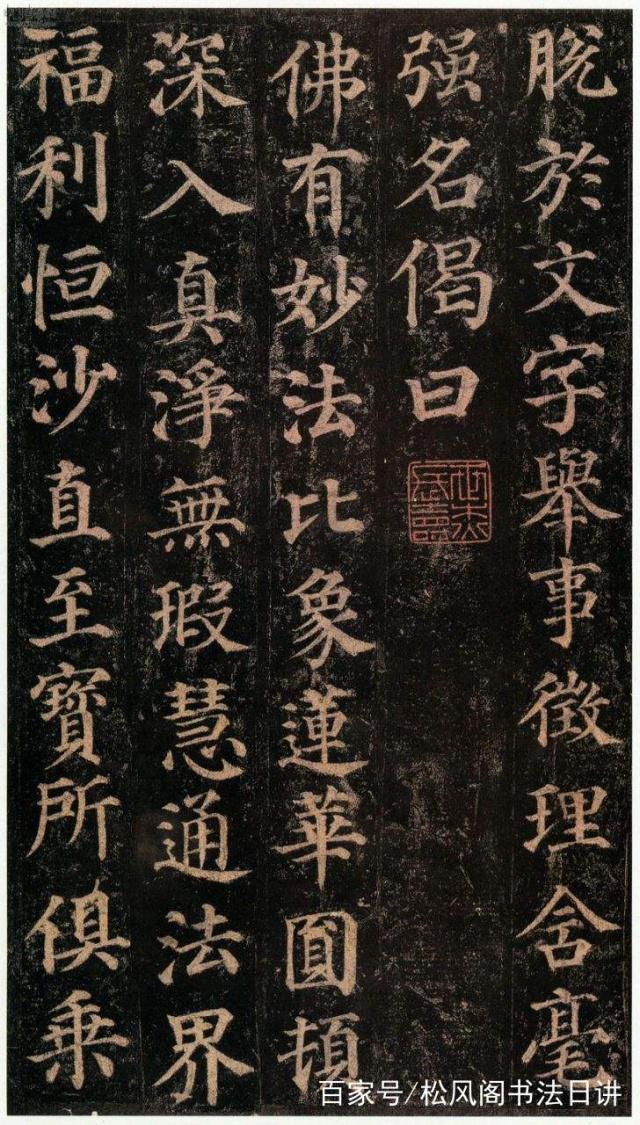 脫於文字舉事徵理含毫
强名偈曰
佛有妙法比象蓮華圓頓
深入真淨無瑕慧通法界
福利恒沙直至寶所俱乘
百家号/松风阁书法日讲